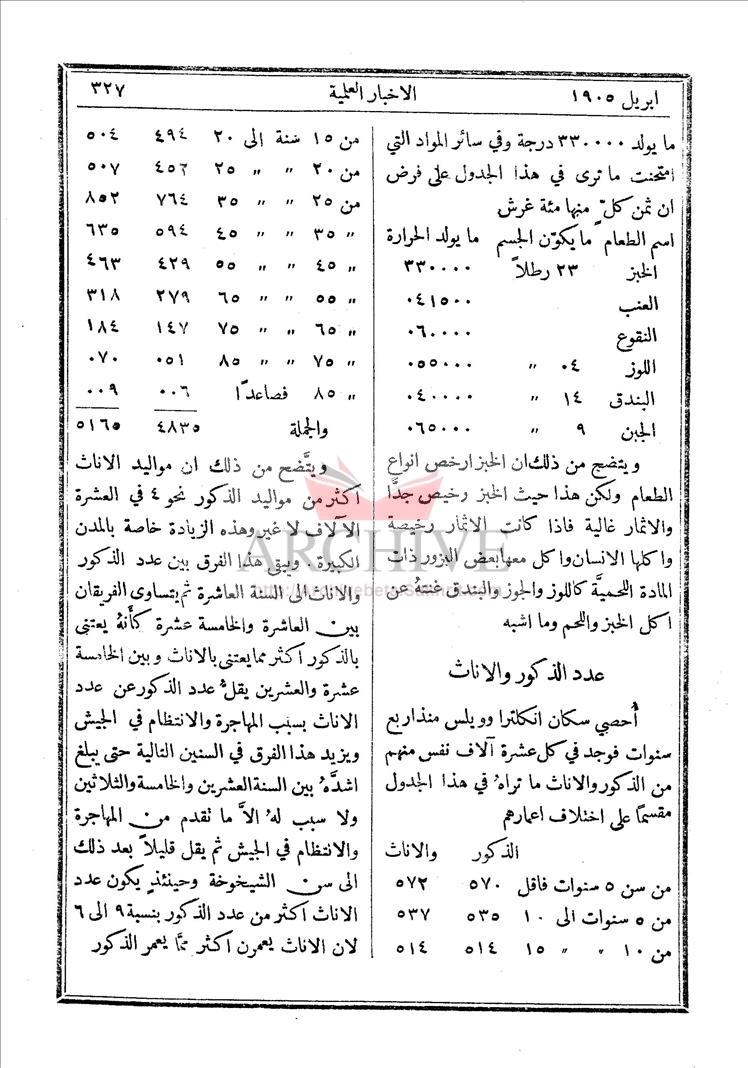 ابريل ١٩٠٥
الاخبار العلمية
٣٢٧
ما يولد ٣٣٠٠٠٠ درجة وفي سائر المواد التي
امتحنت ما ترى في هذا الجدول على فرض
ان ثمن كلٍّ منها مئة غرش
اسم الطعام ما يكوّن الجسم ما يولد الحرارة
الخبز ٢٣ رطلاً ٣٣٠٠٠٠
العنب ٠٤١٥٠٠
النقوع ٠٦٠٠٠٠
اللوز ٠٤ " ٠٥٥٠٠٠
البندق ١٤ " ٠٤٠٠٠٠
الجبن ٩ " ٠٦٥٠٠٠
ويتضح من ذلك ان الخبز ارخص انواع
الطعام ولكن هذا حيث الخبز رخيص جدًّا
والاثمار غالية فاذا كانت الاثمار رخيصة
واكلها الانسان واكل معها بعض البزور ذات
المادة اللحميَّة كاللوز والجوز والبندق غنتهُ عن
اكل الخبز واللحم وما اشبه
عدد الذكور والاناث
أُحصي سكان انكلترا وويلس منذ اربع
سنوات فوجد في كل عشرة آلاف نفس منهم
من الذكور والاناث ما تراهُ في هذا الجدول
مقسمًا على اختلاف اعمارهم
الذكور والاناث
من سن ٥ سنوات فاقل ٥٧٠ ٥٧٢
من ٥ سنوات الى ١٠ ٥٣٥ ٥٣٧
من ١٠ " " ١٥ ٥١٤ ٥١٤
من ١٥ سنة الى ٢٠ ٤٩٤ ٥٠٤
من ٢٠ " " ٢٥ ٤٥٦ ٥٠٧
من ٢٥ " " ٣٥ ٧٦٤ ٨٥٢
" ٣٥ " " ٤٥ ٥٩٤ ٦٣٥
" ٤٥ " " ٥٥ ٤٢٩ ٤٦٣
" ٥٥ " " ٦٥ ٢٧٩ ٣١٨
" ٦٥ " " ٧٥ ١٤٧ ١٨٤
" ٧٥ " " ٨٥ ٠٥١ ٠٧٠
" ٨٥ فصاعدًا ٠٠٦ ٠٠٩
والجملة ٤٨٣٥ ٥١٦٥
ويتَّضح من ذلك ان مواليد الاناث
اكثر من مواليد الذكور نحو ٤ في العشرة
الآلاف لا غير وهذه الزيادة خاصة بالمدن
الكبيرة. ويبقى هذا الفرق بين عدد الذكور
والاناث الى السنة العاشرة ثم يتساوى الفريقان
بين العاشرة والخامسة عشرة كأنهُ يعتنى
بالذكور اكثر مما يعتنى بالاناث وبين الخامسة
عشرة والعشرين يقلُّ عدد الذكور عن عدد
الاناث بسبب المهاجرة والانتظام في الجيش
ويزيد هذا الفرق في السنين التالية حتى يبلغ
اشدَّهُ بين السنة العشرين والخامسة والثلاثين
ولا سبب لهُ الاَّ ما تقدم من المهاجرة
والانتظام في الجيش ثم يقل قليلاً بعد ذلك
الى سن الشيخوخة وحينئذٍ يكون عدد
الاناث اكثر من عدد الذكور بنسبة ٩ الى ٦
لان الاناث يعمرن اكثر ممَّا يعمر الذكور
ARCHIVE